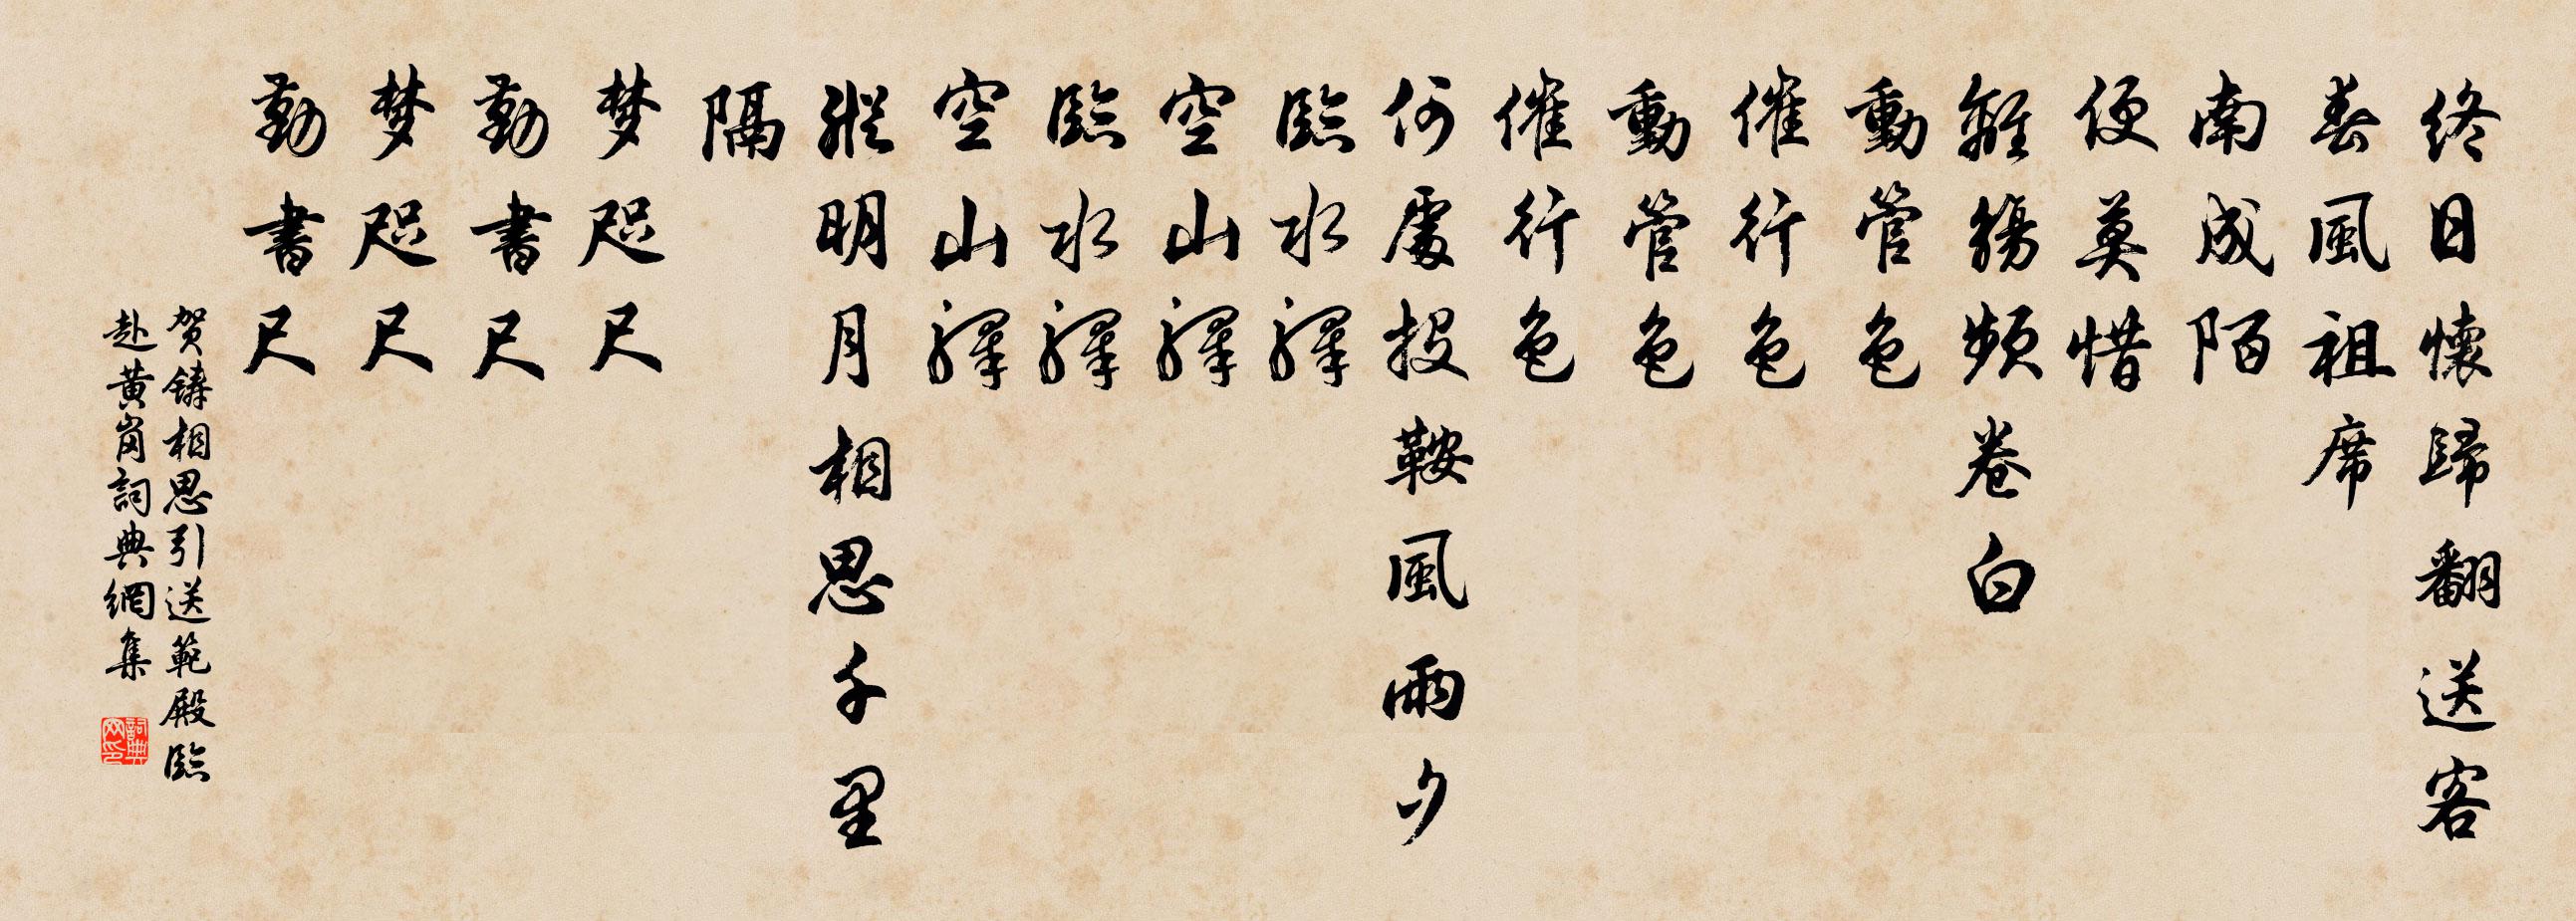 終日懷歸翻送客
春風祖席
南成陌
便莫惜
離觴頻卷白
動管色
催行色
動管色
催行色
何處投鞍風雨夕
臨水驛
空山驛
臨水驛
空山驛
縱明月相思千里
隔
梦咫尺
勤書尺
梦咫尺
勤書尺
贺鑄相思引送範殿臨
赴黄岗詞典網集
詞典网印